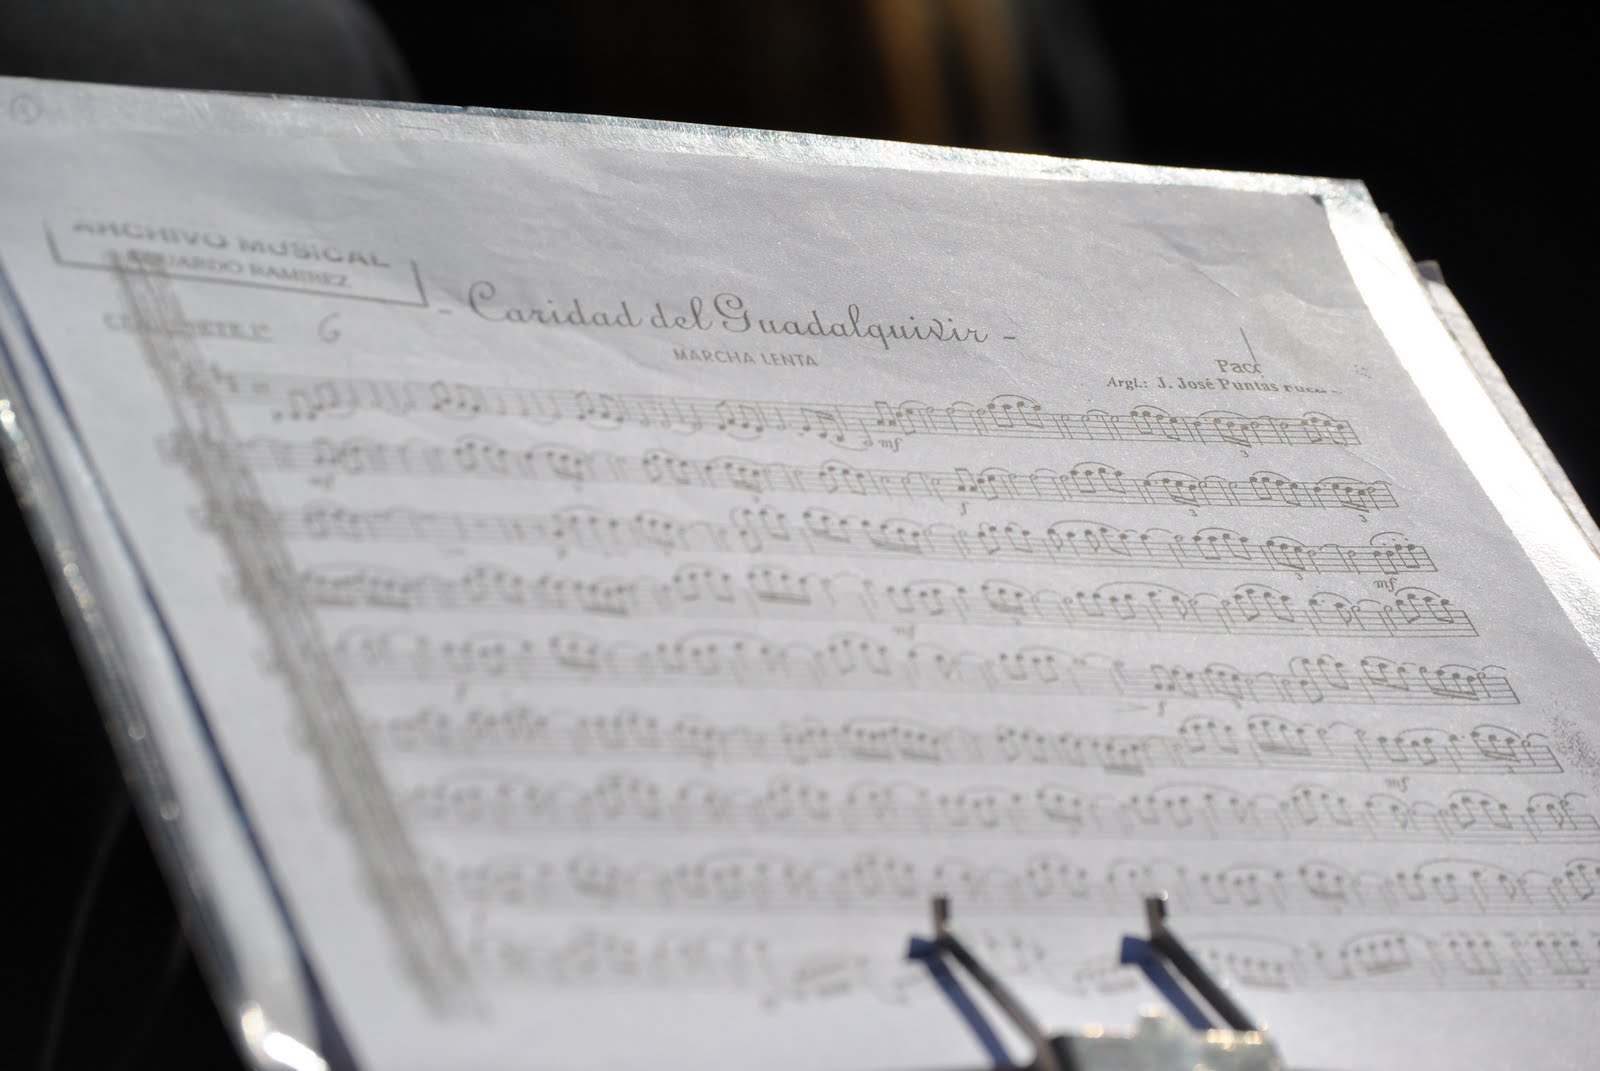 ARCHIVO MUSICAL
EDUARDO RAMIREZ
6
- Caridad del Guadalquivir -
MARCHA LENTA
Pacc
Argl.: J. José Puntas
mf
3
mf
f
3
3
3
mf
mf
f
mf